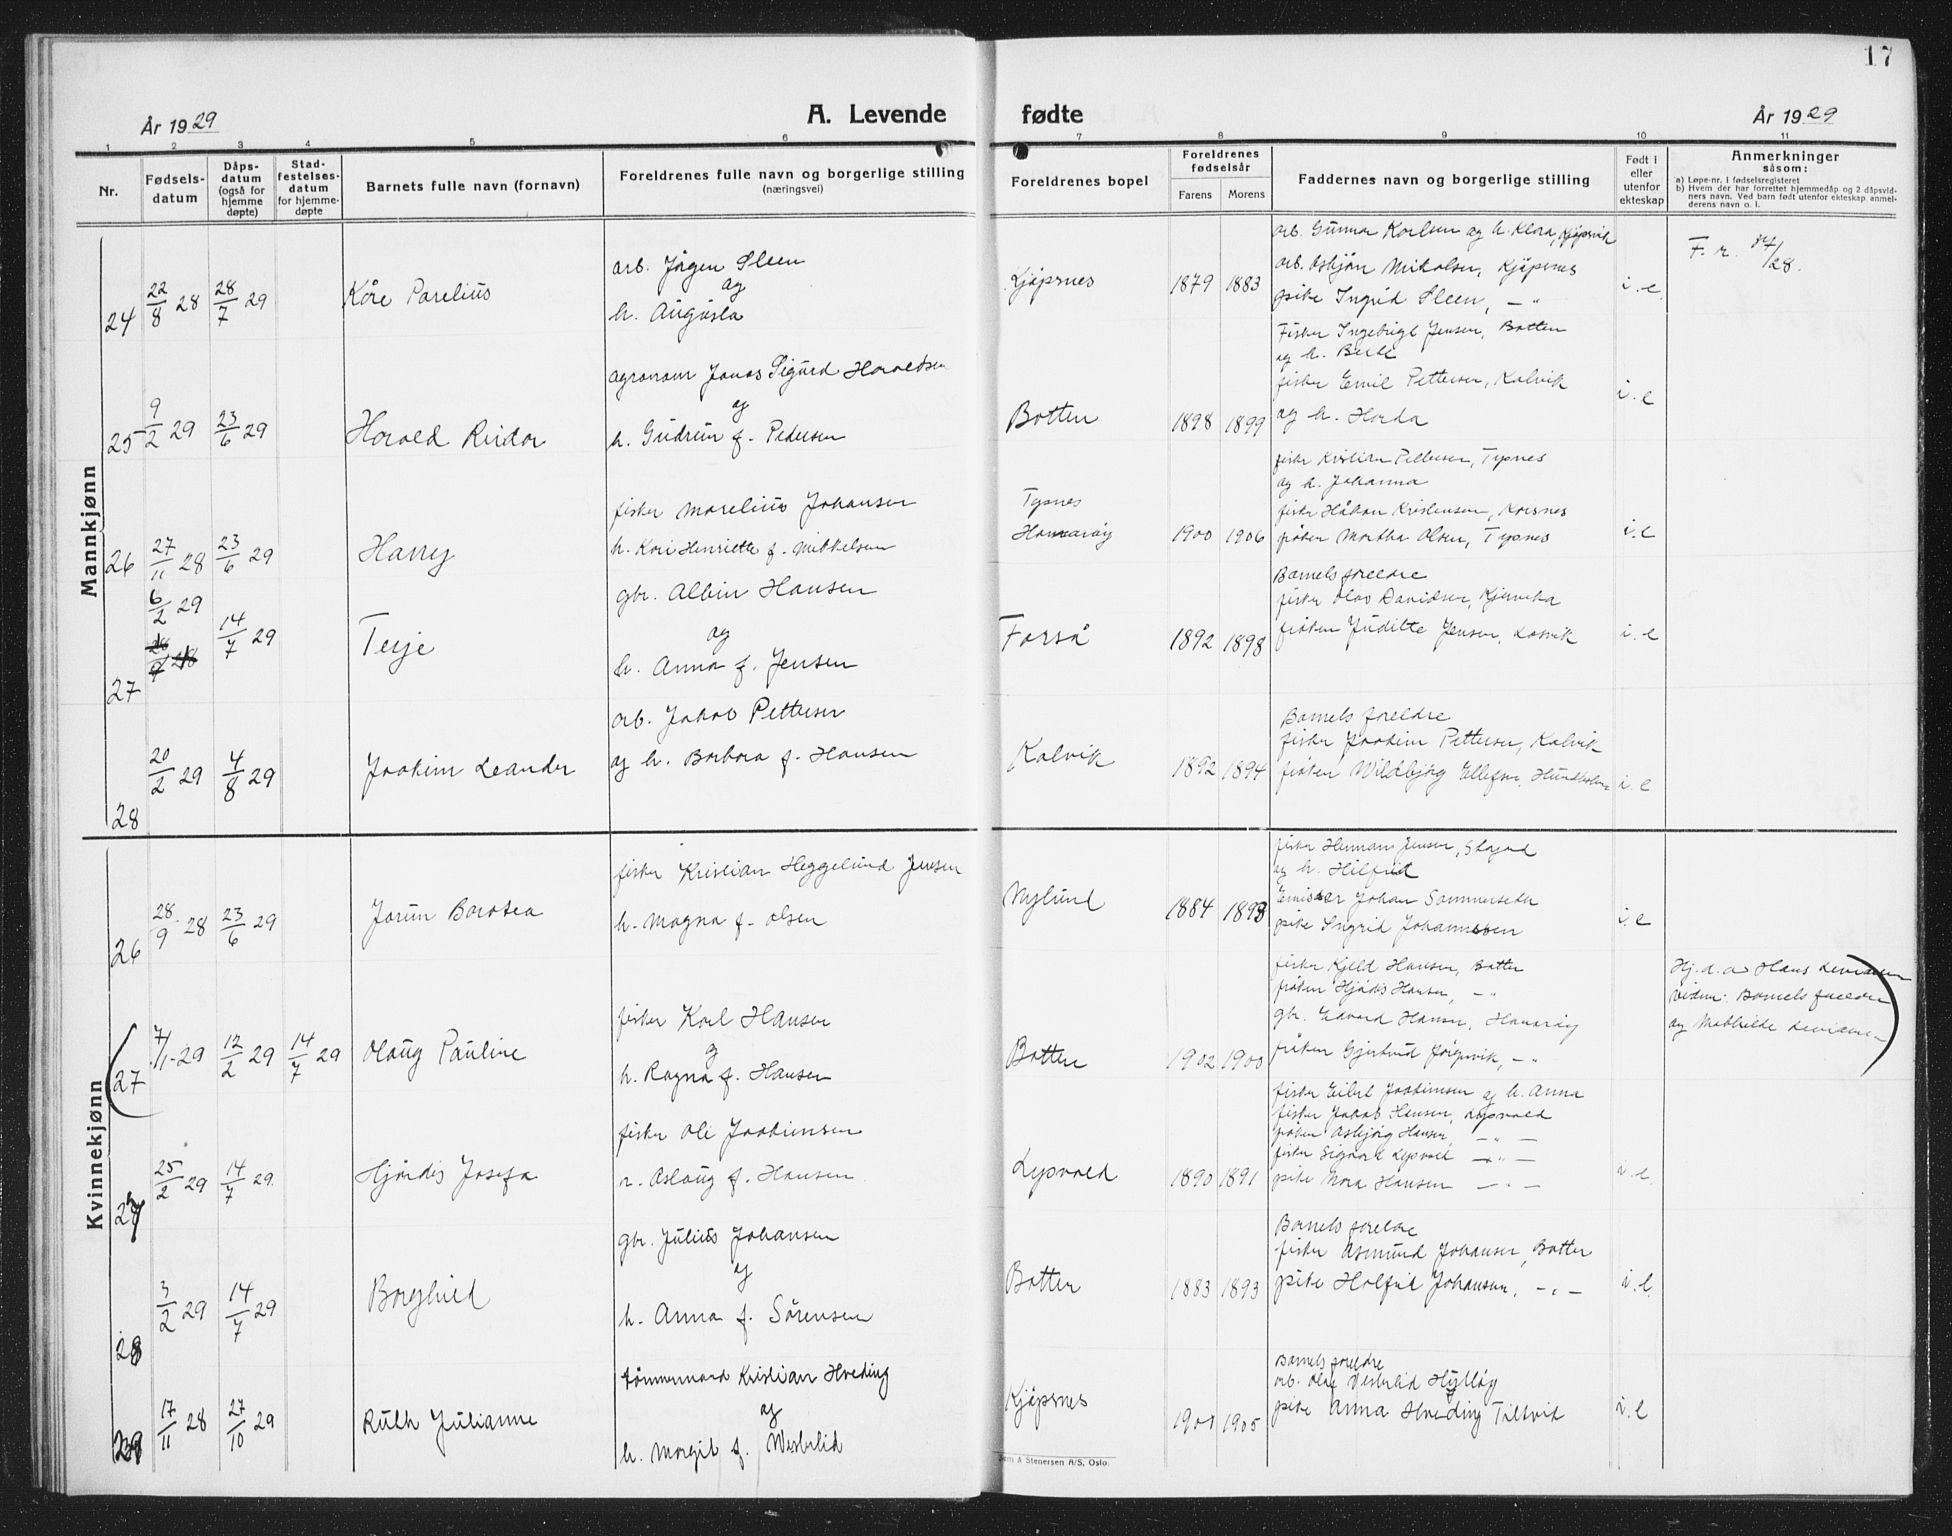 17
År 1929
A. Levende
fødte
År 1929
1 2 3 4 5 6 7 8 9 10 11
Nr.
Fødsels-
datum
Dåps-
datum
(også for
hjemme
døpte)
Stad-
festelses-
datum
for hjemme-
døpte
Barnets fulle navn (fornavn)
Foreldrenes fulle navn og borgerlige stilling
(næringsvei)
Foreldrenes bopel
Foreldrenes
fødselsår
Farens Morens
Faddernes navn og borgerlige stilling
Født i
eller
utenfor
ekteskap
Anmerkninger
såsom:
a) Løpe-nr. i fødselsregisteret
b) Hvem der har forrettet hjemmedåp og 2 dåpsvid-
ners navn. Ved barn født utenfor ekteskap anmel-
derens navn o. l.
Mannkjønn
24
22/8 28
28/7 29
Kåre Parelius
arb. Jørgen Steen
og
h. Augusta
Kjøpsnes
1879 1883
arb. Gunnar Karlsen og h. Klara, Kjøpsvik
arb. Asbjørn Mikalsen, Kjøpsnes
pike Ingrid Steen, — "
i. e.
F. r. /28.
25
9/2 29
23/6 29
Harald Reidar
agronom Jonas Sigurd Haraldsen
og
h. Gudrun f. Pedersen
Botten
1898 1899
Fisker Ingebrigt Jensen, Botten
og h. Berte
fisker Emil Pettersen, Kalvik
og h. Horda
i. e
26
27/11 28
23/6 29
Harry
fisker Marelius Johansen
h. Kari Henriette f. Mikkelsen
Tysnes
Hamarøy
1900 1906
fisker Kristian Pettersen, Tysnes
og h. Johanna
fisker Håkon Kristensen, Korsnes
frøken Martha Olsen, Tysnes
i. e
27
6/2 29
14/7 29
Terje
gbr. Albin Hansen
og
h. Anna f. Jensen
Forså
1892 1898
Barnets foreldre
fisker Olav Davidsen, Kjerveka
frøken Juditte Jensen, Losvik
i. e
28
20/2 29
4/8 29
Joakim Leander
arb. Jakob Pettersen
og h. Barbara f. Hansen
Kalvik
1892 1894
Barnets foreldre
fisker Joakim Pettersen, Kalvik
frøken Wildbjørg Ellefsen, Hundholmen
i. e
Kvinnekjønn
26
28/9 28
23/6 29
Jorun Barotea
fisker Kristian Heggelund Jensen
h. Magna f. Olsen
Nylund
1884 1898
fisker Herman Jensen,
og h. Hilfrid
Emissær Johan Sommerseter
pike Ingrid Johannessen
i. e
27
7/1 29
12/2 29
14/7 29
Olaug Pauline
fisker Karl Hansen
og
h. Ragna f. Hansen
Botten
1902 1900
fisker Kjeld Hansen, Botten
frøken Hjørdis Hansen, — "
gbr. Edvard Hansen, Hamarøy
frøken Gjertrud Jørgensvik, — "
Hj. d. av Hans Levidsen
Vidner: Barnets foreldre
og Mathilde Levidsen
27
25/2 29
14/7 29.
Hjørdis Josefa
fisker Ole Joakimsen
h. Aslaug f. Hansen
Lysvold
1890 1891
fisker Eilert Joakimsen og h. Anna
fisker Jakob Hansen, Lysvold
frøken Asbjørg Hansen — " —
fisker Signar Lysvold — " —
pike Nora Hansen — " —
i. e.
28
3/2 29
14/7 29
Borghild
gbr. Julius Johansen
og
h. Anna f. Sørensen
Botten
1883 1893
Barnets foreldre
fisker Asmund Johansen, Botten
pike Halfrid Johansen, — " —
i. e.
29
17/11 28
27/10 29
Ruth Julianne
tømmermand Kristian Hveding
og
h. Margit f. Westerlid
Kjøpsnes
1901 1905
Barnets foreldre
arb. Olav Vesterlid Hylløy
pike Anna Hveding Tiltvik
i. e
Sem & Stenersen A/S, Oslo.